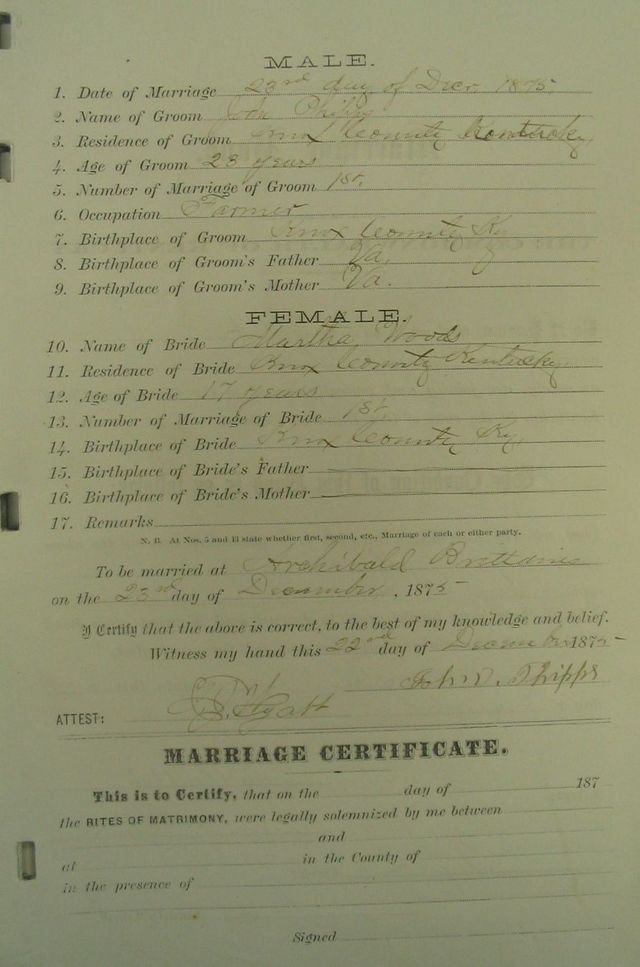 MALE.
1. Date of Marriage 23rd day of Decr. 1875
2. Name of Groom John Phipps
3. Residence of Groom Knox County Kentucky
4. Age of Groom 23 years
5. Number of Marriage of Groom 1st.
6. Occupation Farmer
7. Birthplace of Groom Knox County Ky
8. Birthplace of Groom's Father Va.
9. Birthplace of Groom's Mother Va.
FEMALE.
10. Name of Bride Martha Woods
11. Residence of Bride Knox County Kentucky
12. Age of Bride 17 years
13. Number of Marriage of Bride 1st.
14. Birthplace of Bride Knox County Ky
15. Birthplace of Bride's Father
16. Birthplace of Bride's Mother
17. Remarks
N. B. At Nos. 5 and 13 state whether first, second, etc., Marriage of each or either party.
To be married at Archibald
on the 23rd day of December, 1875
I Certify that the above is correct, to the best of my knowledge and belief.
Witness my hand this 22nd day of December 1875
John Phipps
ATTEST: Pyatt
MARRIAGE CERTIFICATE.
This is to Certify, that on the day of 187
the RITES OF MATRIMONY, were legally solemnized by me between
and
at in the County of
in the presence of
Signed